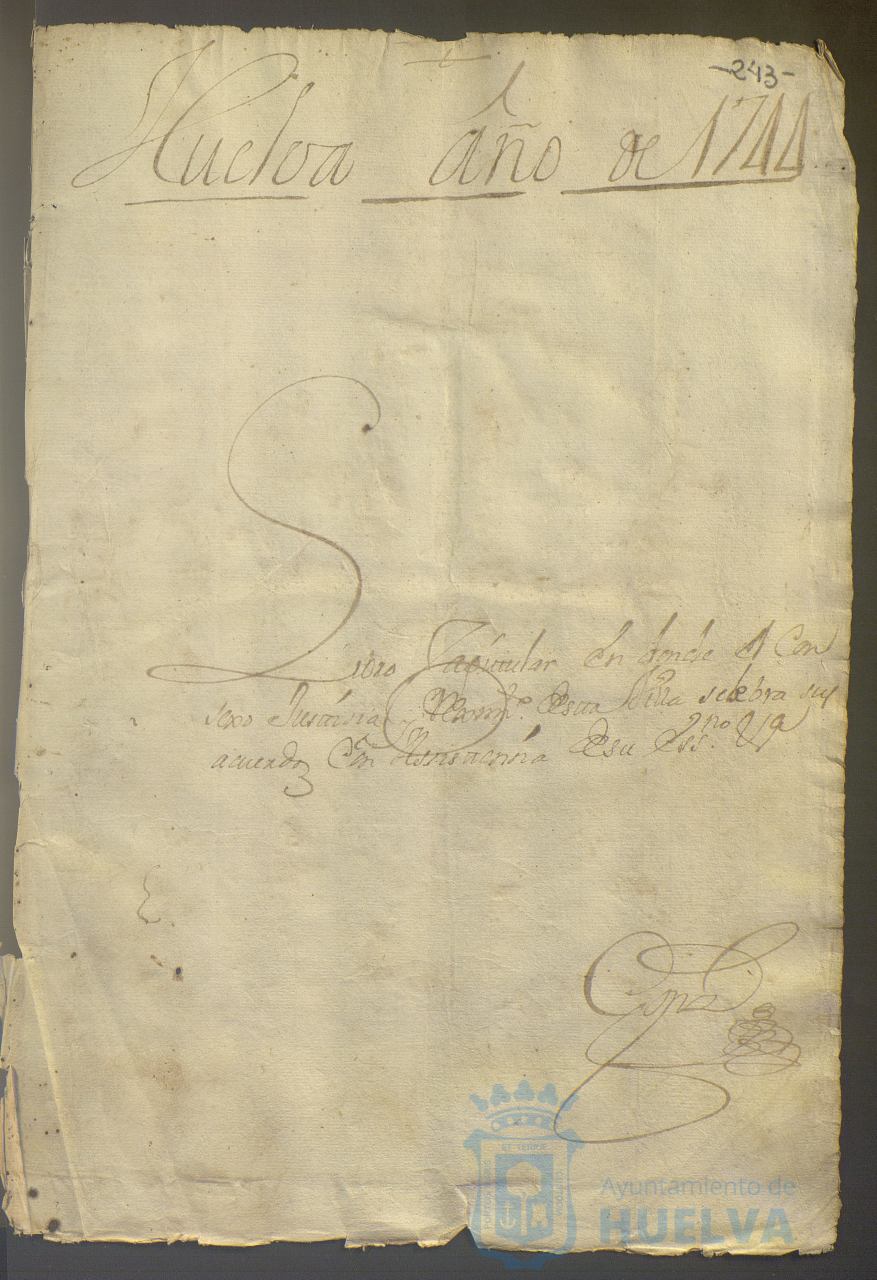 -243-
Huelva año de 1744
Libro Capitular en donde el Con
sexo Justisia y Rexim.º desta Villa selebra sus
acuerdos Con Asistensia de su Ess.no
Ayuntamiento de
HUELVA